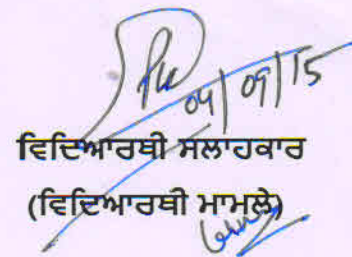 04/09/15
ਵਿਦਿਆਰਥੀ ਸਲਾਹਕਾਰ
(ਵਿਦਿਆਰਥੀ ਮਾਮਲੇ)